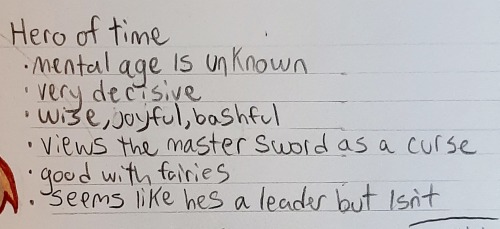 Hero of time
· mental age is unknown
· very decisive
· wise, joyful, bashful
· views the master sword as a curse
· good with fairies
· seems like hes a leader but isn't